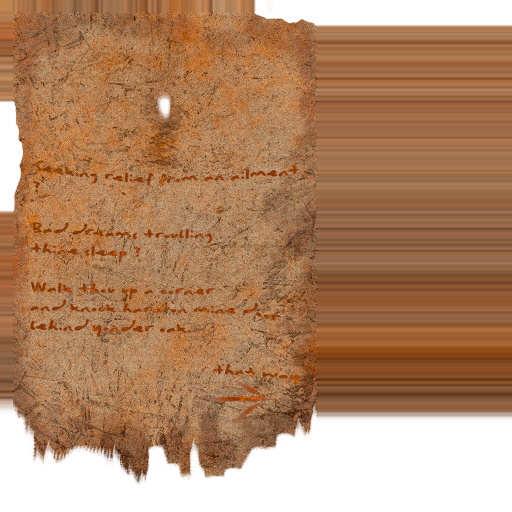 Seeking relief from an ailment
?
Bad dreams troubling
thine sleep ?
Walk thou up a corner
and knock hard on mine door
behind yonder oak
that way